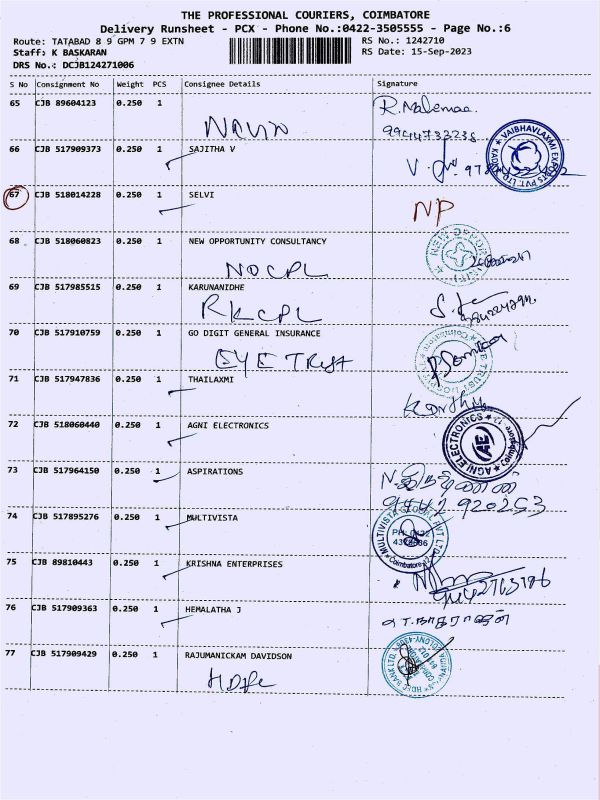 THE PROFESSIONAL COURIERS, COIMBATORE
Delivery Runsheet - PCX - Phone No.:0422-3505555 - Page No.:6
Route: TATABAD 8 9 GPM 7 9 EXTN RS No.: 1242710
Staff: K BASKARAN RS Date: 15-Sep-2023
DRS No.: DCJB124271006
S No Consignment No Weight PCS Consignee Details Signature
65 CJB 89604123 0.250 1 R. Malemaa.
NAVIN 9944733238
66 CJB 517909373 0.250 1 SAJITHA V
VAIBHAVLAXMI EXPORTS PVT. LTD.
67 CJB 518014228 0.250 1 SELVI
NP
68 CJB 518060823 0.250 1 NEW OPPORTUNITY CONSULTANCY
NOCPL
69 CJB 517985515 0.250 1 KARUNANIDHE
RKCPL
70 CJB 517910759 0.250 1 GO DIGIT GENERAL INSURANCE
EYE TRUST
71 CJB 517947836 0.250 1 THAILAXMI
72 CJB 518060440 0.250 1 AGNI ELECTRONICS
AGNI ELECTRONICS Coimbatore-12
AE
73 CJB 517964150 0.250 1 ASPIRATIONS
9442920253
74 CJB 517895276 0.250 1 MULTIVISTA
MULTIVISTA GLOBAL PVT LTD. Coimbatore
PH: 0422
75 CJB 89810443 0.250 1 KRISHNA ENTERPRISES
76 CJB 517909363 0.250 1 HEMALATHA J
77 CJB 517909429 0.250 1 RAJUMANICKAM DAVIDSON
HDFC
HDFC BANK LTD.